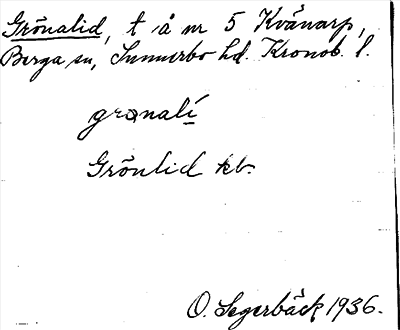 Grönalid, t å nr 5 Kvänarp,
Berga sn, Sunnerbo hd. Kronob. l.
grønalí
Grönlid kb.
O. Segerbäck 1936.